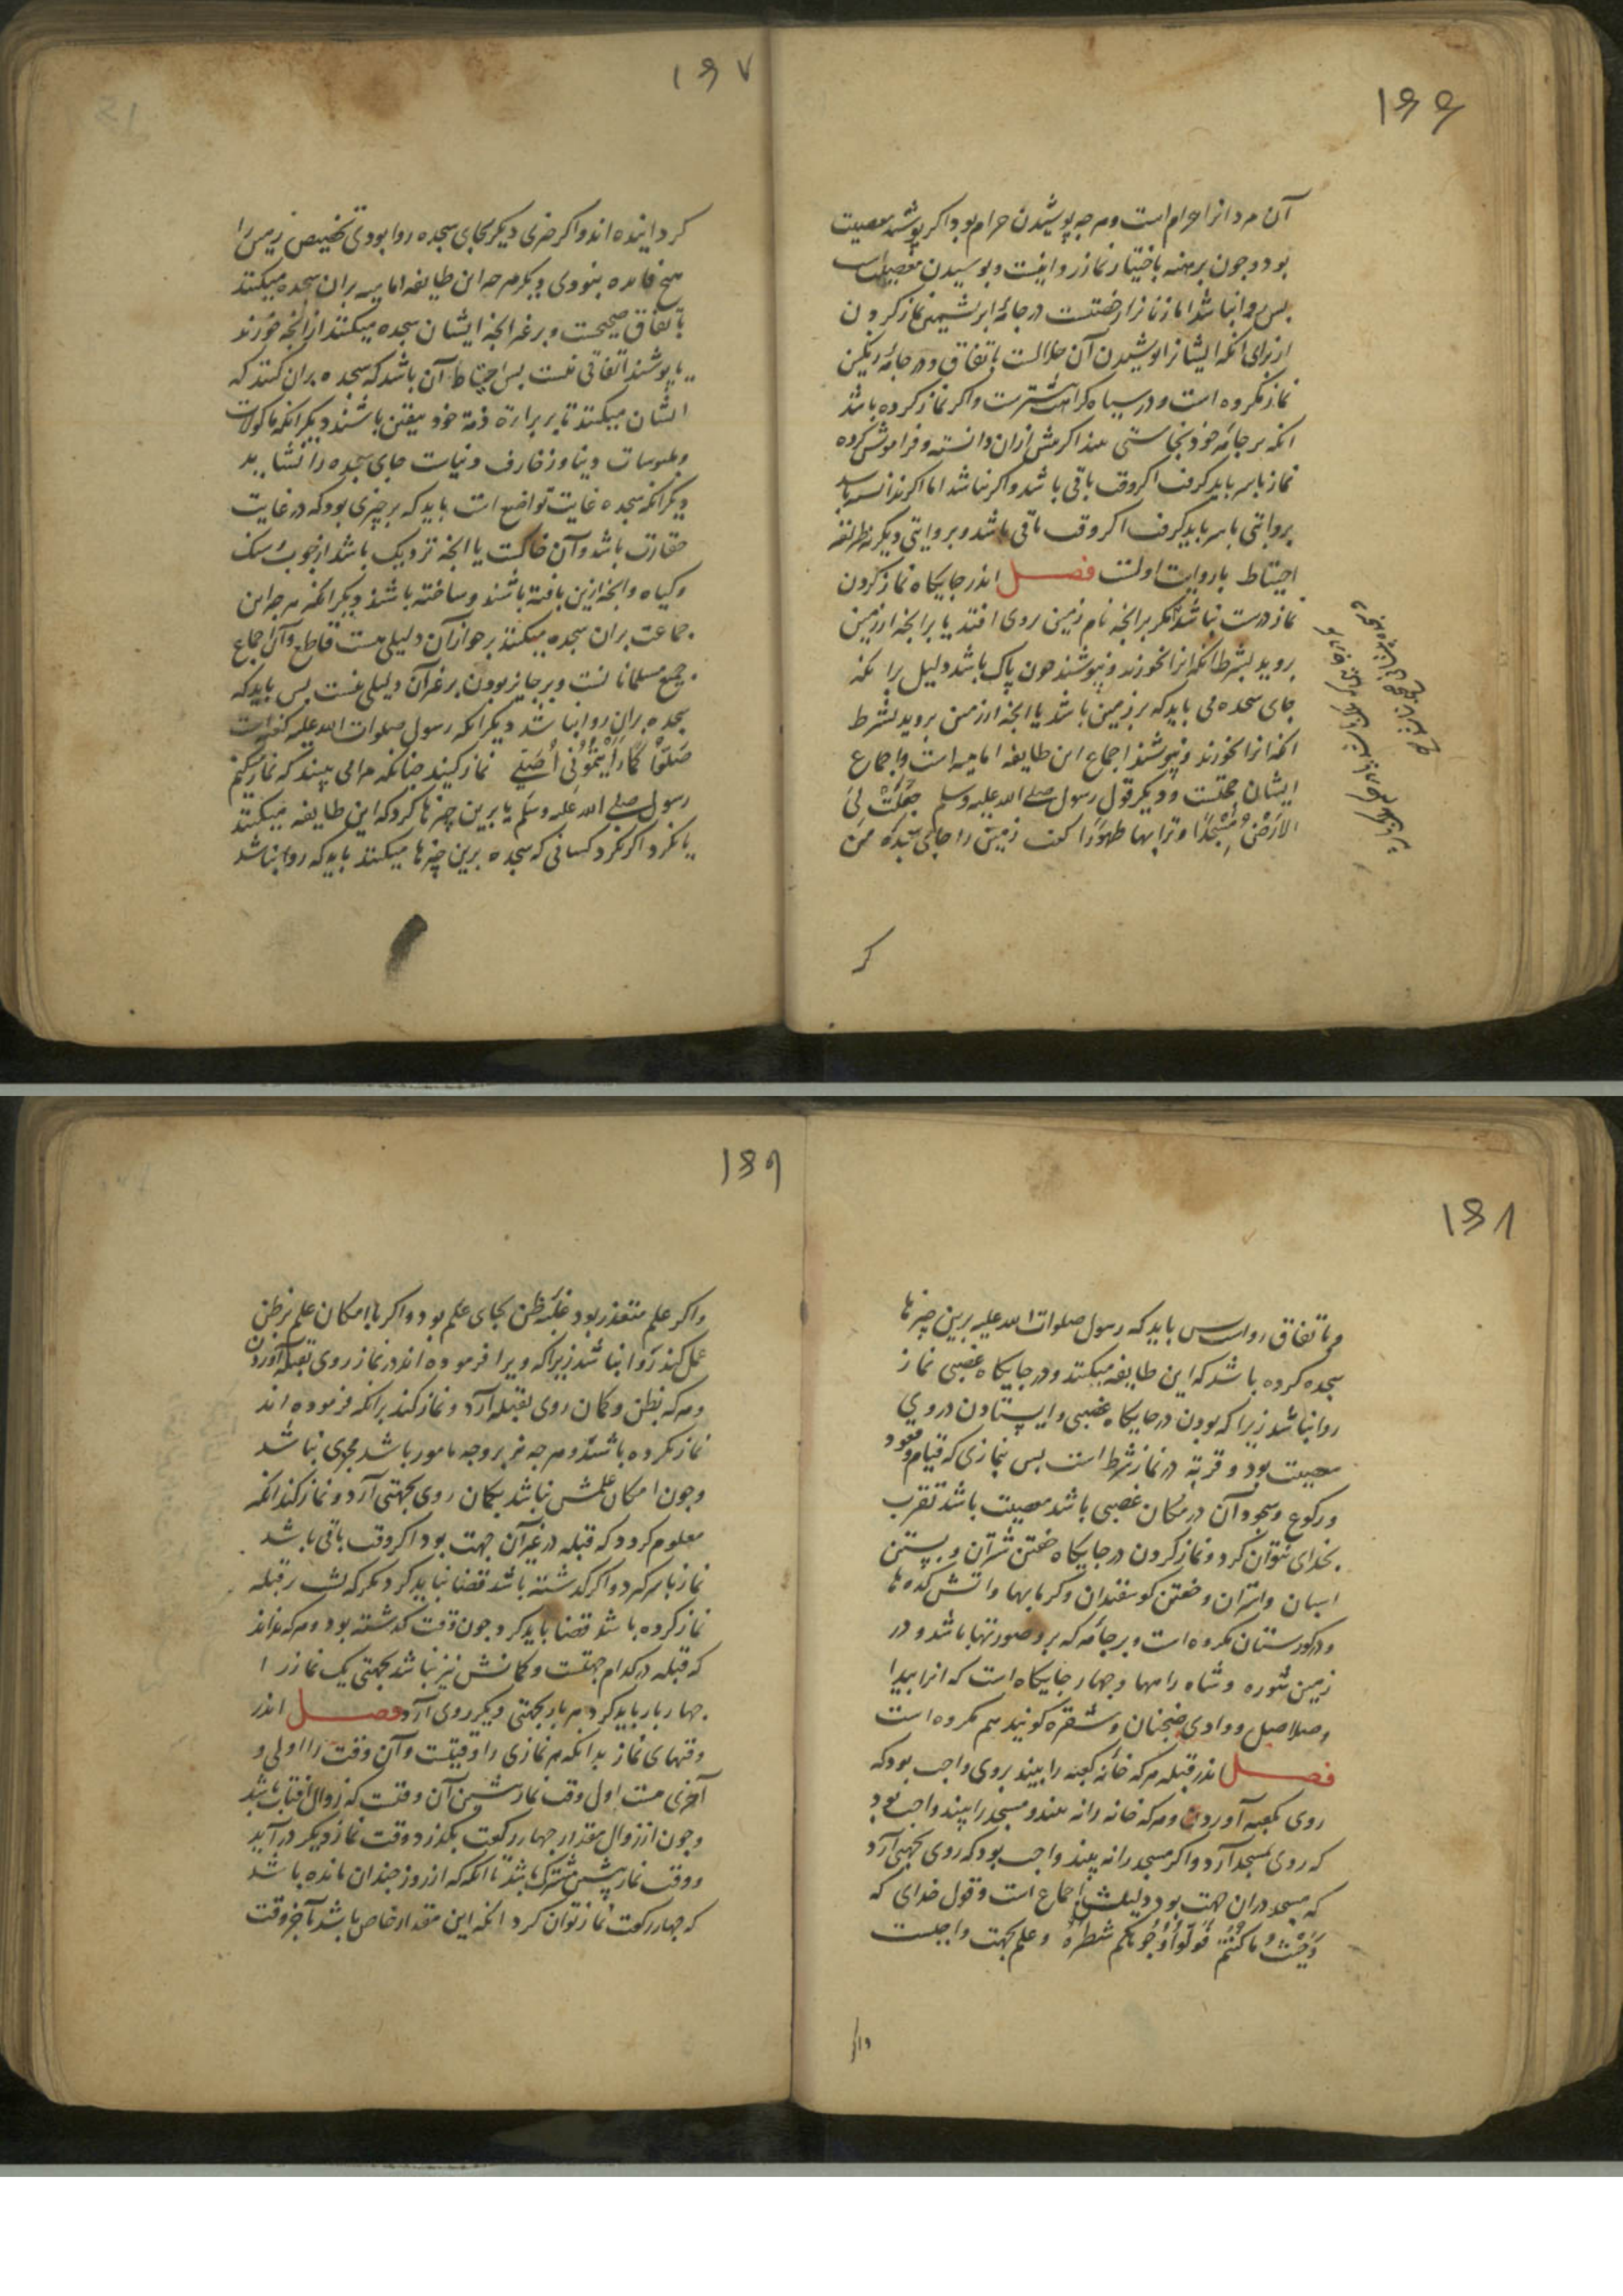 ۱۶۶
آن مردانرا حرام است و هر چه پوشیدن حرام بود اکر پوشند معصیت
بود و چون برهنه باختیار نماز روا نیست و پوشیدن معصیت است
بس روا نباشد اما زنانرا رخصتست در جامهٔ ابریشمین نماز کردن
از برای انکه ایشانرا پوشیدن آن حلالست باتفاق و در جامهٔ رنکین
نماز مکروه است و در سیاه کراهت بیشترست و اکر نماز کرده باشد
انکه بر جامه خود نجاستی بیند اکر بیش ازان دانسته و فراموش کرده
نماز باسر باید کرفت اکر وقت باقی باشد و اکر نباشد اما اکر ندانسته باشد
بروایتی باسر باید کرفت اکر وقت باقی باشد و بروایتی دیکر نه نظر بطریقه
احتیاط باروایت اولست فصل اندر جایکاه نماز کردن
نماز درست نباشد مکر بر انجه نام زمین روی افتد یا بر انجه از زمین
بروید بشرط انکه انرا نخورند و نپوشند چون پاک باشد دلیل بر انکه
جای سجده می باید که بر زمین باشد یا انجه از زمین بروید بشرط
انکه انرا نخورند و نپوشند اجماع این طایفه امامیه است و اجماع
ایشان حجتست و دیکر قول رسول صلی الله علیه وسلم جُعِلَتْ لِیَ
الارْضُ مَسْجِدًا و ترابها طهورًا کفت زمین را جای سجده من
کر
۱۶۷
کردانیده اند و اکر چیزی دیکر بجای سجده روا بودی تخصیص زمین را
هیچ فایده نبودی دیکر هر چه این طایفه امامیه بران سجده میکنند
باتفاق صحیحست و بر غیر انجه ایشان سجده میکنند از انجه خورند
یا پوشند اتفاقی نیست بس احتیاط آن باشد که سجده بران کنند که
ایشان میکنند تا بر براءة ذمة خود بیقین باشند دیکر انکه ماکولات
و ملبوسات دنیا و زخارف دنیات جای سجده را نشاید
دیکر انکه سجده غایت تواضع است باید که بر چیزی بود که در غایت
حقارت باشد و آن خاکست یا انجه نزدیک باشد از چوب و سنک
و کیاه و انجه ازین بافته باشند و ساخته باشند دیکر انکه هر چه این
جماعت بران سجده میکنند بر جواز آن دلیلی هست قاطع و آن اجماع
جمیع مسلمانانست و بر جایز بودن بر غیر آن دلیلی نیست بس باید که
سجده بران روا نباشد دیکر انکه رسول صلوات الله علیه کفته است
صَلُّوا کَمَا رَأَیْتُمُونِی اُصَلِّی نماز کنید چنانکه مرا می بینید که نماز میکنم
رسول صلی الله علیه وسلم یا برین چیزها کرد که این طایفه میکنند
یا نکرد اکر نکرد کسانی که سجده برین چیزها میکنند باید که روا نباشد
۱۶۸
و باتفاق رواست بس باید که رسول صلوات الله علیه برین چیزها
سجده کرده باشد که این طایفه میکنند و در جایکاه غصبی نماز
روا نباشد زیرا که بودن در جایکاه غصبی و ایستادن در وی
معصیت بود و قربة در نماز شرط است بس بنمازی که قیام و قعود
و رکوع و سجود آن در مکان غصبی باشد معصیت باشد تقرب
بخدای نتوان کرد و نماز کردن در جایکاه خفتن شتران و بستن
اسبان و استران و خفتن کوسفندان و کرمابها و اتش کده ها
و در کورستان مکروه است و بر جامه که برو صورتها باشد و در
زمین شوره و شاه راهها و چهار جایکاه است که انرا بیدا
و صلاصل و وادی ضجنان و شقره کویند هم مکروه است
فصل اندر قبله هر که خانه کعبه را بیند بروی واجب بود که
روی بکعبه آورد و هر که خانه را نه بیند و مسجد را بیند واجب بود
که روی بمسجد آرد و اکر مسجد را نه بیند واجب بود که روی بجهتی آرد
که مسجد دران جهت بود دلیلش اجماع است و قول خدای که
وَ حَیْثُ مَا کُنْتُمْ فَوَلُّوا وُجُوهَکُمْ شطرهُ و علم بجهت واجبست
و اکر
۱۶۹
و اکر علم متعذر بود غلبه ظن بجای علم بود و اکر با امکان علم بر ظن
عمل کند روا نباشد زیرا که ویرا فرموده اند در نماز روی بقبله آوردن
و هر که بظن و کمان روی بقبله آرد و نماز کند بر انکه فرموده اند
نماز نکرده باشد و هر چه نه بر وجه مامور باشد مجزی نباشد
و چون امکان علمش نباشد بکمان روی بجهتی آرد و نماز کند انکه
معلوم کردد که قبله در غیر آن جهت بود اکر وقت باقی باشد
نماز باسر کیرد و اکر کذشته باشد قضا نباید کرد مکر که پشت بر قبله
نماز کرده باشد قضا باید کرد چون وقت کذشته بود و هر که نداند
که قبله در کدام جهتست و کمانش نیز نباشد بجهتی یک نماز را
چهار بار باید کرد هر بار بجهتی دیکر روی آرد فصل اندر
وقتهای نماز بدانکه هر نمازی را وقتیست و آن وقت را اولی و
آخری هست اول وقت نماز پیشین آن وقتست که زوال افتاب باشد
و چون از زوال مقدار چهار رکعت بکذرد وقت نماز دیکر در آید
و وقت نماز پیشین مشترک باشد تا انکه که از روز چندان مانده باشد
که چهار رکعت نماز توان کرد انکه این مقدار خاص باشد بآخر وقت